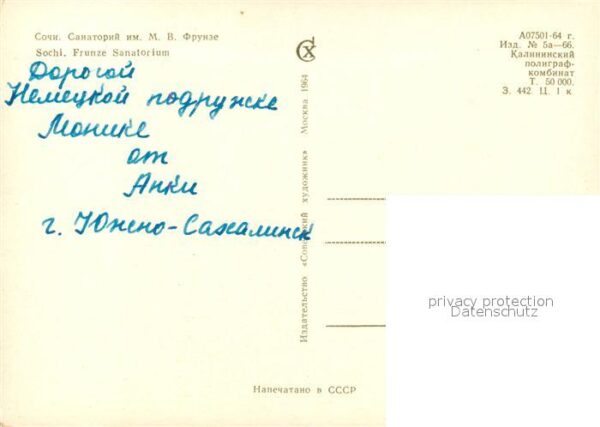 Сочи. Санаторий им. М. В. Фрунзе
Sochi. Frunze Sanatorium
Дорогой
Немецкой подружке
Монике
от
Анки
г. Южно-Сахалинск
СХ
Издательство «Советский художник» Москва 1964
А07501-64 г.
Изд. № 5а—66.
Калининский
полиграф-
комбинат
Т. 50 000.
З. 442 Ц. 1 к.
privacy protection
Datenschutz
Напечатано в СССР